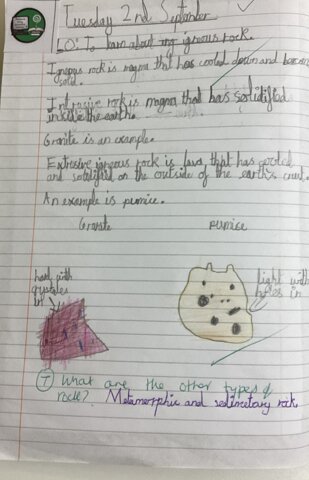 Tuesday 2nd September
LO: To learn about igneous rock.
Igneous rock is magma that has cooled down and become
solid.
Intrusive rock is magma that has solidified
inside the earth.
Granite is an example.
Extrusive igneous rock is lava that has cooled
and solidified on the outside of the earth's crust.
An example is pumice.
Granite Pumice
hard with
crystales
in
light with
holes in
T What are the other types of
rock? Metamorphic and sedimetary rock